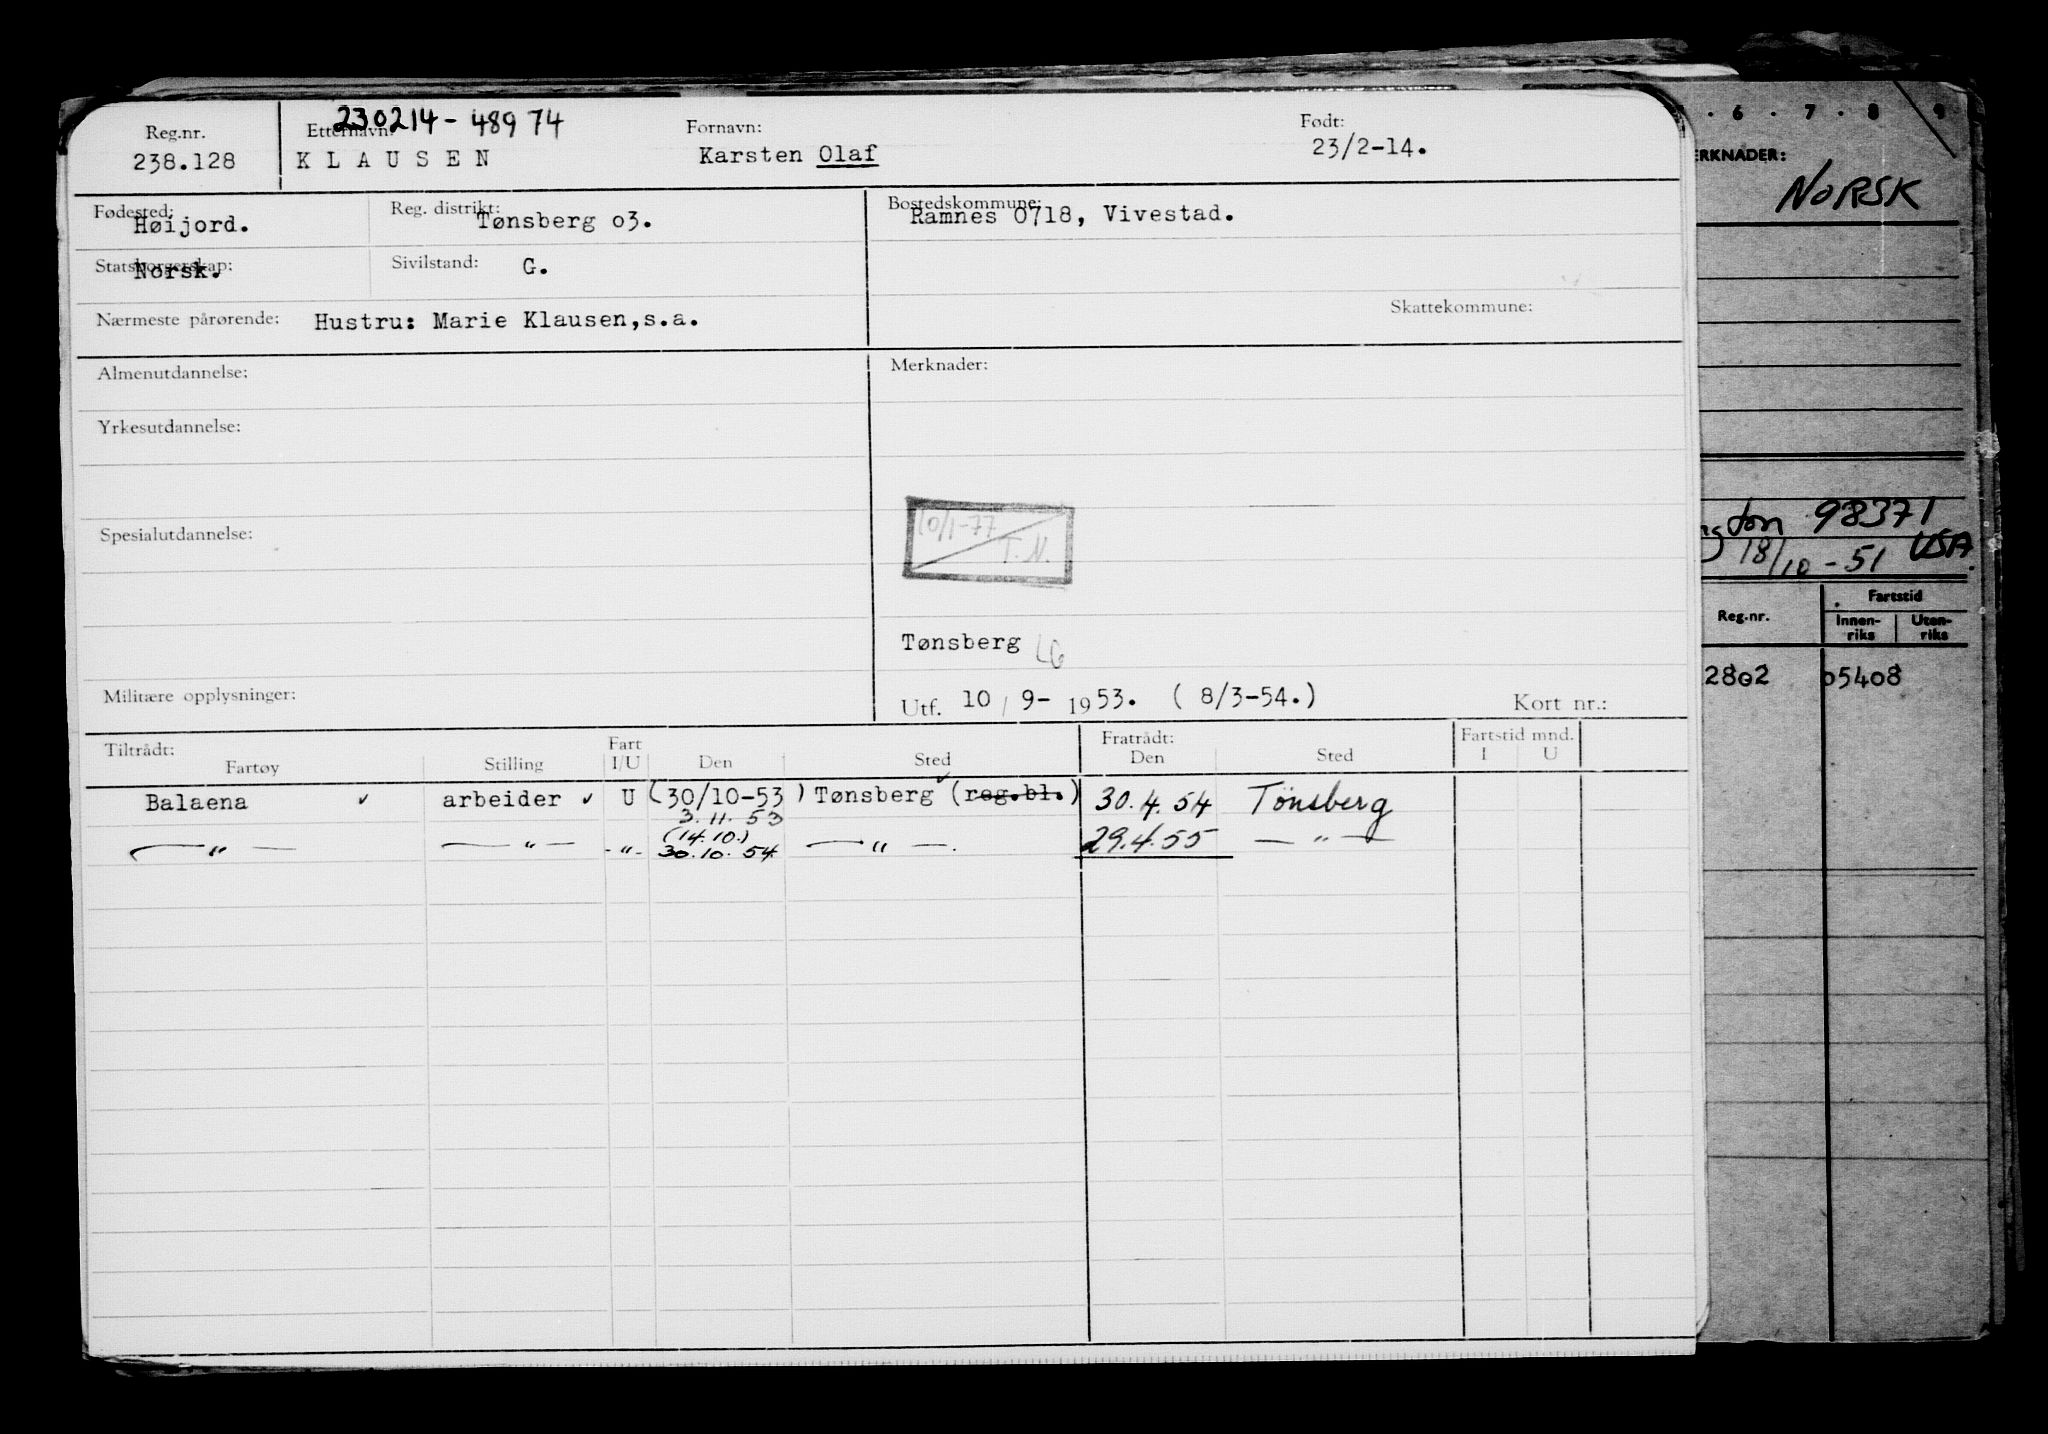 Reg.nr. 238.128
230214-48974
Etternavn: KLAUSEN
Fornavn: Karsten Olaf
Født: 23/2-14.
Fødested: Høijord.
Reg. distrikt: Tønsberg o3.
Bostedskommune: Ramnes 0718, Vivestad.
Statsborgerskap: Norsk.
Sivilstand: G.
Skattekommune:
Nærmeste pårørende: Hustru: Marie Klausen,s.a.
Almenutdannelse:
Merknader:
Yrkesutdannelse:
10/1-77
T.N.
Spesialutdannelse:
Tønsberg LG
Militære opplysninger:
Utf. 10/9-1953. (8/3-54.)
Kort nr.:
Tiltrådt: Fratrådt: Fartstid mnd.
Fartøy Stilling Fart I/U Den Sted Den Sted I U
Balaena ✓ arbeider ✓ U (30/10-53) Tønsberg ✓ (reg.bl.) 30.4.54 Tönsberg
3.11.53
(14.10.)
—"— —"— -"- 30.10.54 —"—. 29.4.55 —"—
· 6 · 7 · 8 9
ERKNADER:
NORSK
ton 98371
18/10-51 USA.
Reg.nr. Fartstid
Innen-riks Uten-riks
2802 05408